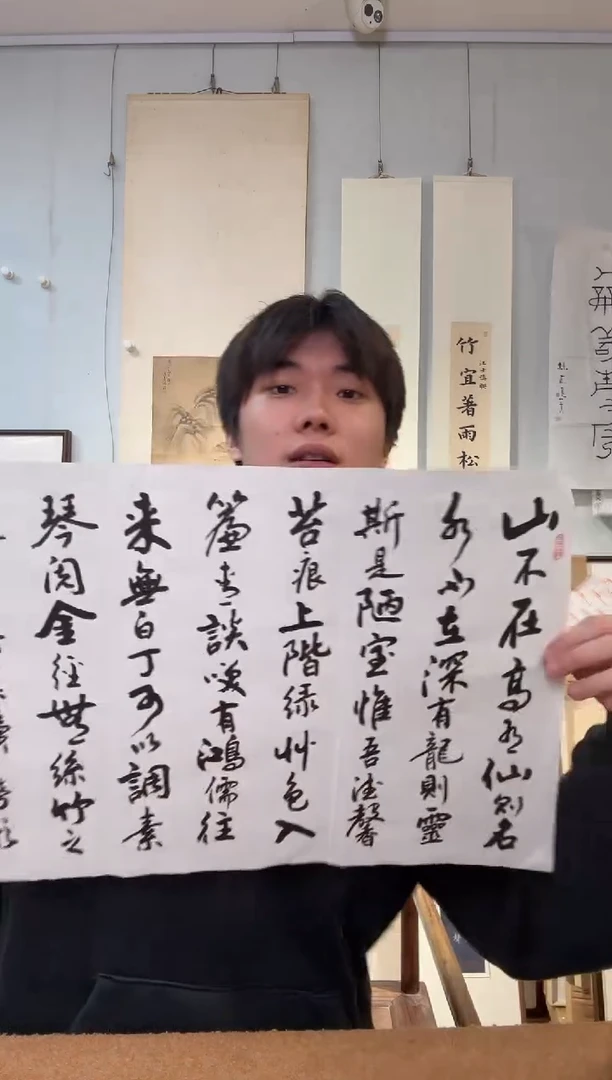 山不在高有仙則名
水不在深有龍則靈
斯是陋室惟吾德馨
苔痕上階緑艸色入
簾青談咲有鴻儒往
来無白丁可以調素
琴閲金經無絲竹之
竹宜著雨松